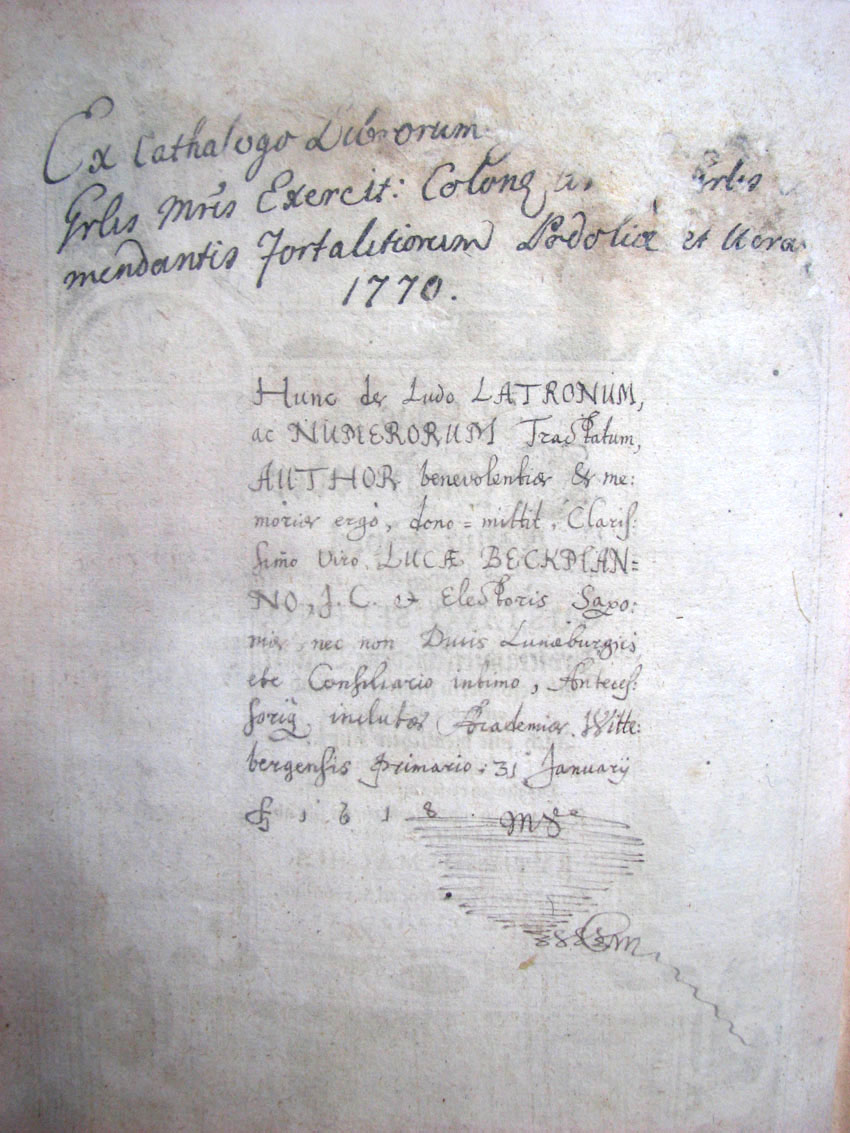 Ex Cathalogo Librorum
Grlis Mris Exercit: Colonq
mendantis Fortalitiorum Podoliæ et Ucra
1770.
Hunc de Ludo LATRONUM,
ac NUMERORUM Tractatum,
AUTHOR benevolentiæ & me:
moriæ ergò, dono=mittit, Claris:
simo Viro, LUCÆ BECKMAN=
NO, J.C. et Electoris Saxo:
niæ, nec non Ducis Lunæburgici
etc Consiliario intimo, Anteces:
soriq inclutæ Academiæ Witte:
bergensis Primario: 31 January
1618